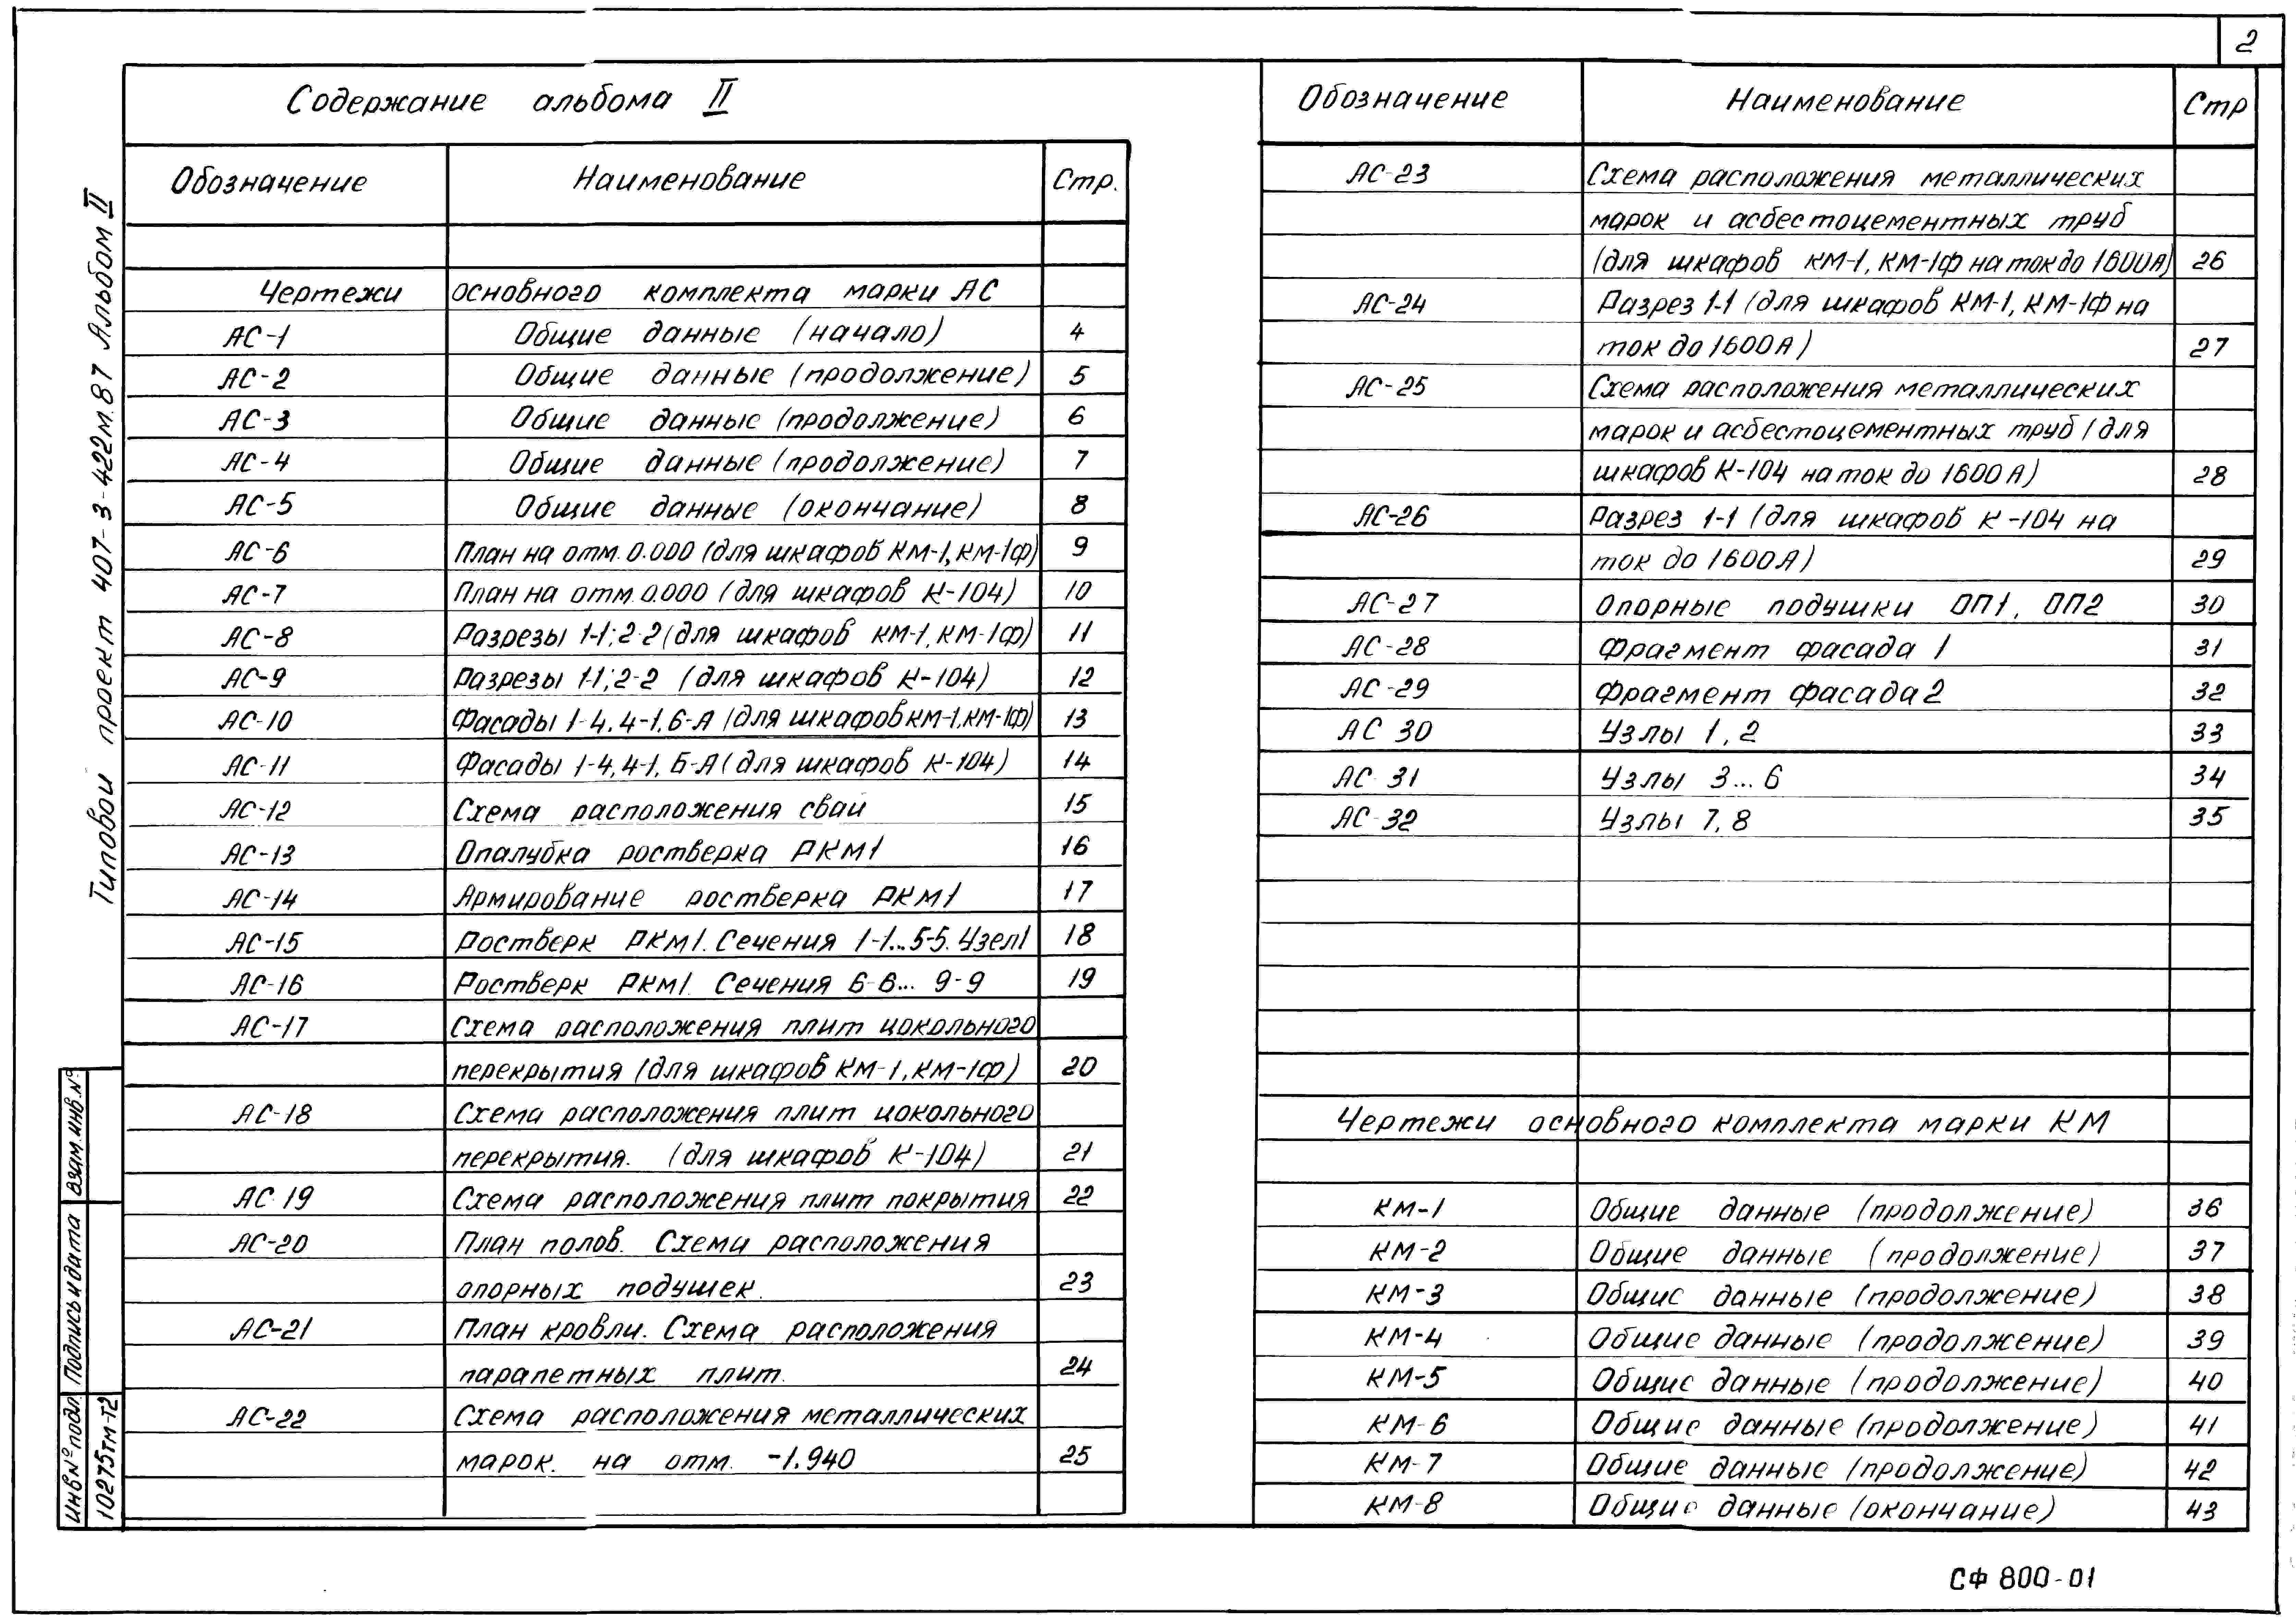 2
Содержание альбома II
Обозначение Наименование Стр.
Чертежи основного комплекта марки АС
АС-1 Общие данные (начало) 4
АС-2 Общие данные (продолжение) 5
АС-3 Общие данные (продолжение) 6
АС-4 Общие данные (продолжение) 7
АС-5 Общие данные (окончание) 8
АС-6 План на отм. 0.000 (для шкафов КМ-1, КМ-1Ф) 9
АС-7 План на отм. 0.000 (для шкафов К-104) 10
АС-8 Разрезы 1-1; 2-2 (для шкафов КМ-1, КМ-1Ф) 11
АС-9 Разрезы 1-1; 2-2 (для шкафов К-104) 12
АС-10 Фасады 1-4, 4-1, Б-А (для шкафов КМ-1, КМ-1Ф) 13
АС-11 Фасады 1-4, 4-1, Б-А (для шкафов К-104) 14
АС-12 Схема расположения свай 15
АС-13 Опалубка ростверка РКМ1 16
АС-14 Армирование ростверка РКМ1 17
АС-15 Ростверк РКМ1. Сечения 1-1...5-5. Узел1 18
АС-16 Ростверк РКМ1. Сечения 6-6... 9-9 19
АС-17 Схема расположения плит цокольного
перекрытия (для шкафов КМ-1, КМ-1Ф) 20
АС-18 Схема расположения плит цокольного
перекрытия. (для шкафов К-104) 21
АС 19 Схема расположения плит покрытия 22
АС-20 План полов. Схемы расположения
опорных подушек. 23
АС-21 План кровли. Схема расположения
парапетных плит. 24
АС-22 Схема расположения металлических
марок. на отм. -1.940 25
Обозначение Наименование Стр
АС-23 Схема расположения металлических
марок и асбестоцементных труб
(для шкафов КМ-1, КМ-1Ф на ток до 1600А) 26
АС-24 Разрез 1-1 (для шкафов КМ-1, КМ-1Ф на
ток до 1600А) 27
АС-25 Схема расположения металлических
марок и асбестоцементных труб (для
шкафов К-104 на ток до 1600А) 28
АС-26 Разрез 1-1 (для шкафов К-104 на
ток до 1600А) 29
АС-27 Опорные подушки ОП1, ОП2 30
АС-28 Фрагмент фасада 1 31
АС-29 Фрагмент фасада 2 32
АС 30 Узлы 1, 2 33
АС 31 Узлы 3...6 34
АС-32 Узлы 7, 8 35
Чертежи основного комплекта марки КМ
КМ-1 Общие данные (продолжение) 36
КМ-2 Общие данные (продолжение) 37
КМ-3 Общие данные (продолжение) 38
КМ-4 Общие данные (продолжение) 39
КМ-5 Общие данные (продолжение) 40
КМ-6 Общие данные (продолжение) 41
КМ-7 Общие данные (продолжение) 42
КМ-8 Общие данные (окончание) 43
Типовой проект 407-3-422м.87 Альбом II
Взам. инв. №
Подпись и дата
Инв № подл.
10275тм-т2
СФ 800-01